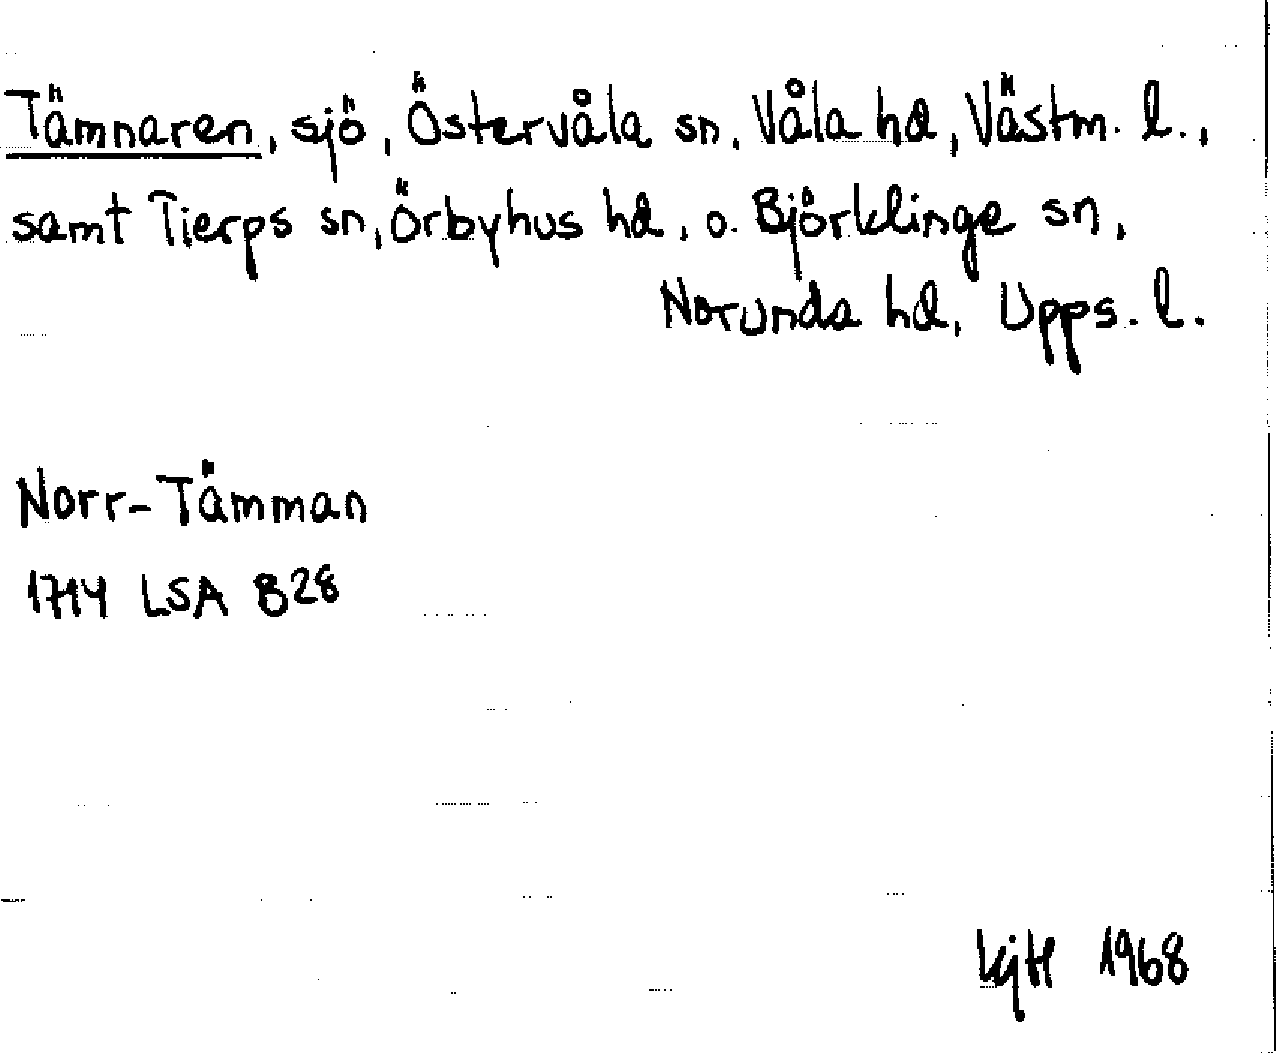 Tämnaren, sjö, Östervåla sn, Våla hd, Västm. l.,
samt Tierps sn, Örbyhus hd, o. Björklinge sn,
Norunda hd, Upps. l.
Norr-Tämman
1714 LSA B28
KjH 1968